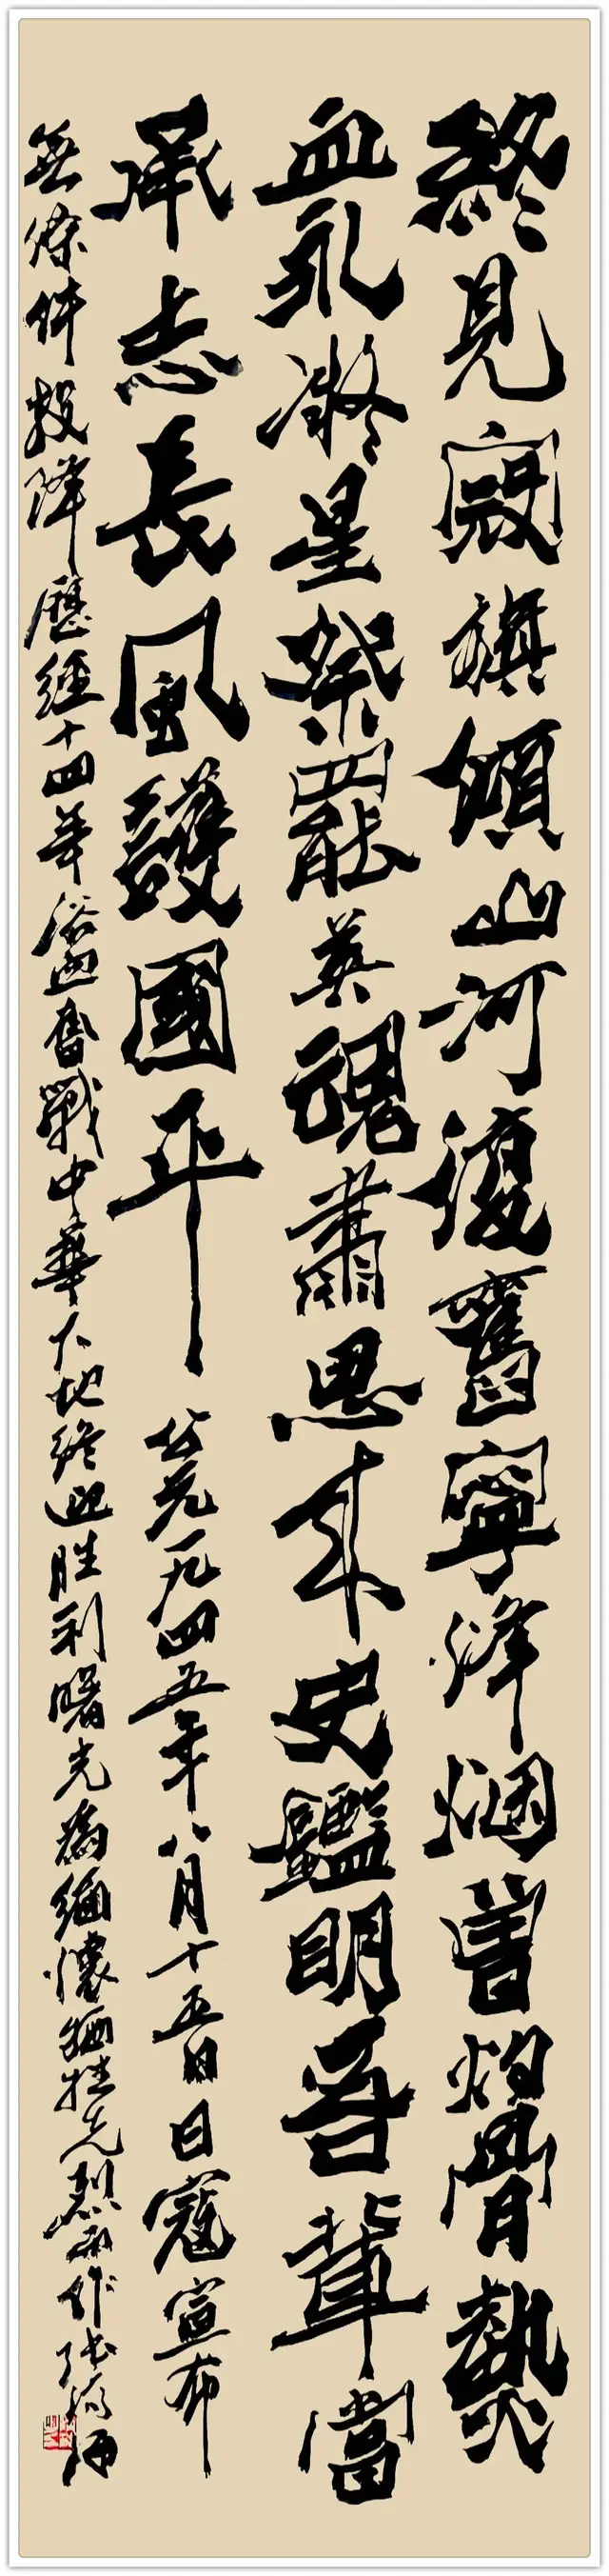 終見寇旗傾山河復舊寧烽烟曾灼骨熱
血永凝星祭罷英魂肅思來史鑑明吾輩當
承志長風護國平 公元一九四五年八月十五日日寇宣布
無條件投降歷經十四年浴血奮戰中華大地終迎勝利曙光為緬懷犧牲先烈而作